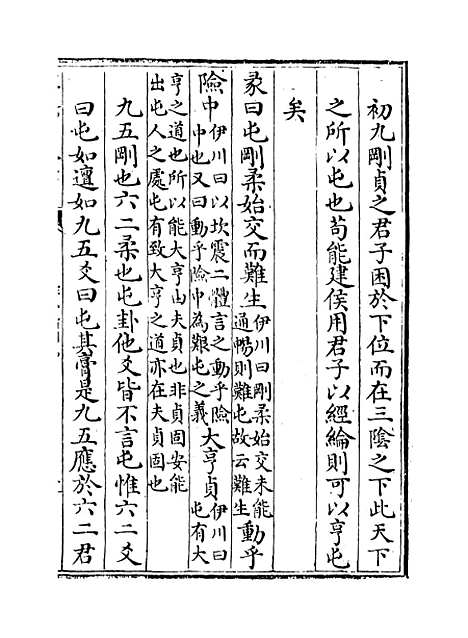 初九剛貞之君子困於下位而在三陰之下此天下
之所以屯也苟能建侯用君子以經綸則可以亨屯
矣
彖曰屯剛柔始交而難生伊川曰剛柔始交未能通暢則難屯故云難生動乎
險中伊川曰以坎震二體言之動乎險中也又曰動乎險中為艱屯之義大亨貞伊川曰屯有大
亨之道也所以能大亨由夫貞也非貞固安能出屯人之處屯有致大亨之道亦在夫貞固也
九五剛也六二柔也屯卦他爻皆不言屯惟六二爻
曰屯如邅如九五爻曰屯其膏是九五應於六二君